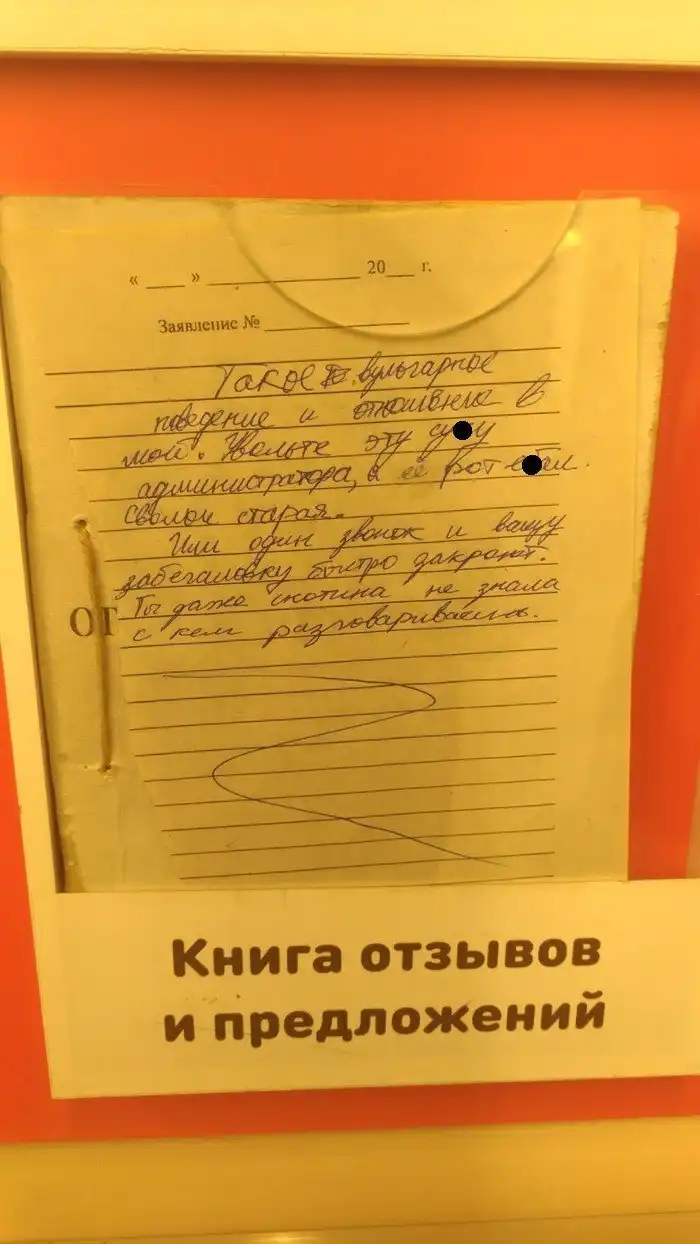 « ___ » ______________ 20___ г.
Заявление № ______________
Такое вульгарное
поведение и отношение в
мой. Увольте эту су●у
администратора, я её рот е●ал.
Сволочь старая.
Или один звонок и вашу
забегаловку быстро закроют.
Ты даже скотина не знала
с кем разговариваешь.
ОТ
Книга отзывов
и предложений